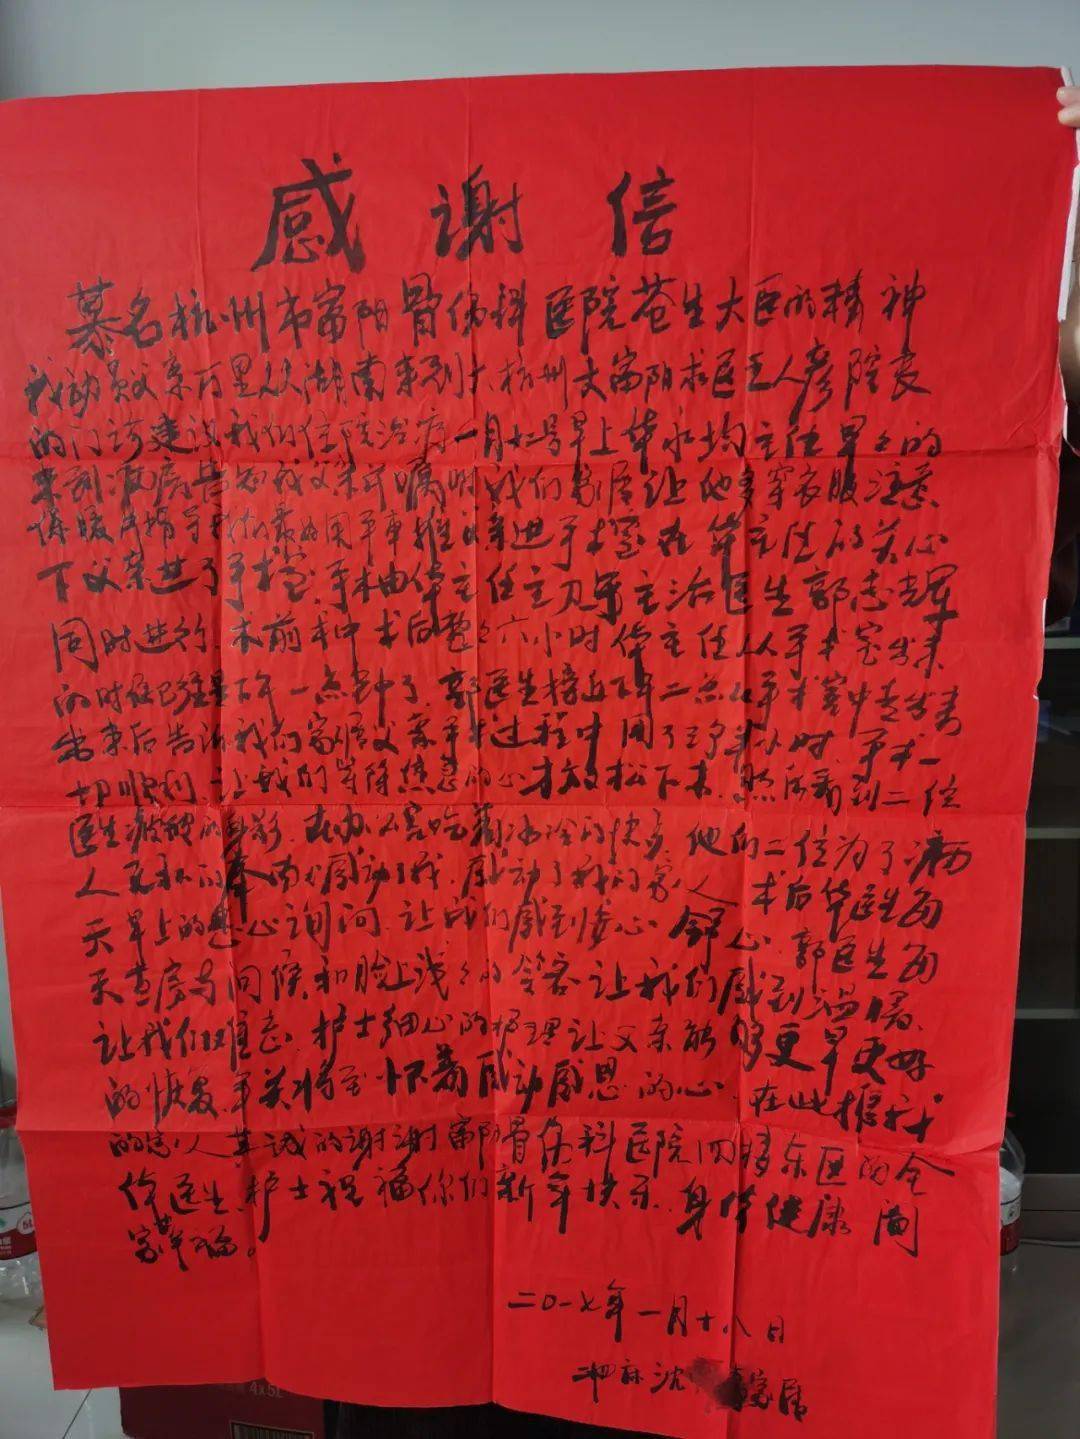 感谢信
慕名杭州市富阳骨伤科医院苍生大医的精神
我动员父亲万里从湖南来到大杭州大富阳求医王人彦院长
的门诊建议我们住院治病一月十二号早上华永均主任早早的
来到病房告知我父亲并嘱咐我们家属让他多穿衣服注意
保暖并指导我们最好用平车推父亲进手术室在华主任的关心
下父亲进了手术室.手术由华主任主刀导主治医生郭志辉
同时进行.术前术中术后整整六小时华主任从手术室出来
的时候已经是下午一点钟了.郭医生接近下午二点从手术室中走出来
出来后告诉我们家属父亲手术过程中用了三个半小时.手术一
切顺利.让我们等待焦急的心才放松下来.然后看到二位
医生疲惫的身影.在办公室吃着冰冷的快餐.他们二位为了病
人无私的奉献感动了我.感动了我的家人.术后华医生每
天早上的悉心询问.让我们感到安心舒心.郭医生每
天查房与问候和脸上浅浅的笑容让我们感到温暖.
让我们难忘.护士细心的护理让父亲能够更早更好
的恢复.年关将至怀着感动感恩的心.在此根我
的家人真诚的谢谢富阳骨伤科医院四楼东区的全
体医生.护士祝福你们新年快乐.身体健康阖
家幸福。
二〇一七年一月十八日
二四床沈 家属
4x5L